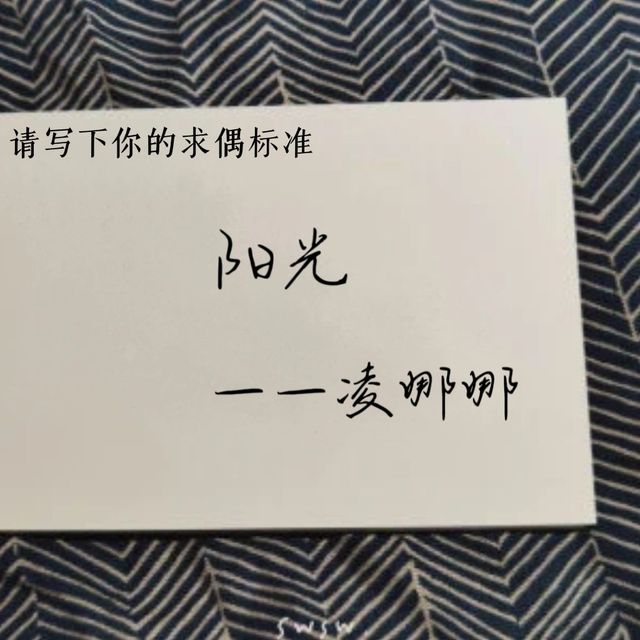 请写下你的求偶标准
阳光
——凌娜娜
swsw.